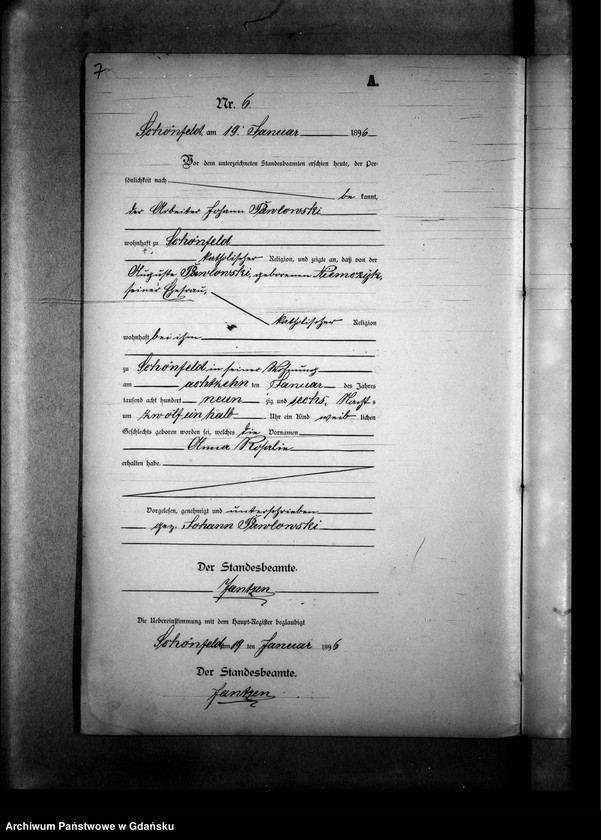 7
A.
Nr. 6
Schönfeld am 19. Januar 1896
Vor dem unterzeichneten Standesbeamten erschien heute, der Per-
sönlichkeit nach
be kannt,
der Arbeiter Johann Pawlowski
wohnhaft zu Schönfeld
katholischer Religion, und zeigte an, daß von der
Auguste Pawlowski, geborenen
seiner Ehefrau,
katholischer Religion
wohnhaft bei ihm
zu Schönfeld in seiner Wohnung
am achtzehn ten Januar des Jahres
tausend acht hundert neun zig und sechs, Nachts
um zwölfeinhalb Uhr ein Kind weib lichen
Geschlechts geboren worden sei, welches die Vornamen
Anna Rosalie
erhalten habe.
Vorgelesen, genehmigt und unterschrieben
gez. Johann Pawlowski
Der Standesbeamte.
Jantzen
Die Uebereinstimmung mit dem Haupt-Register beglaubigt
Schönfeld am 19 ten Januar 1896
Der Standesbeamte.
Jantzen
Archiwum Państwowe w Gdańsku